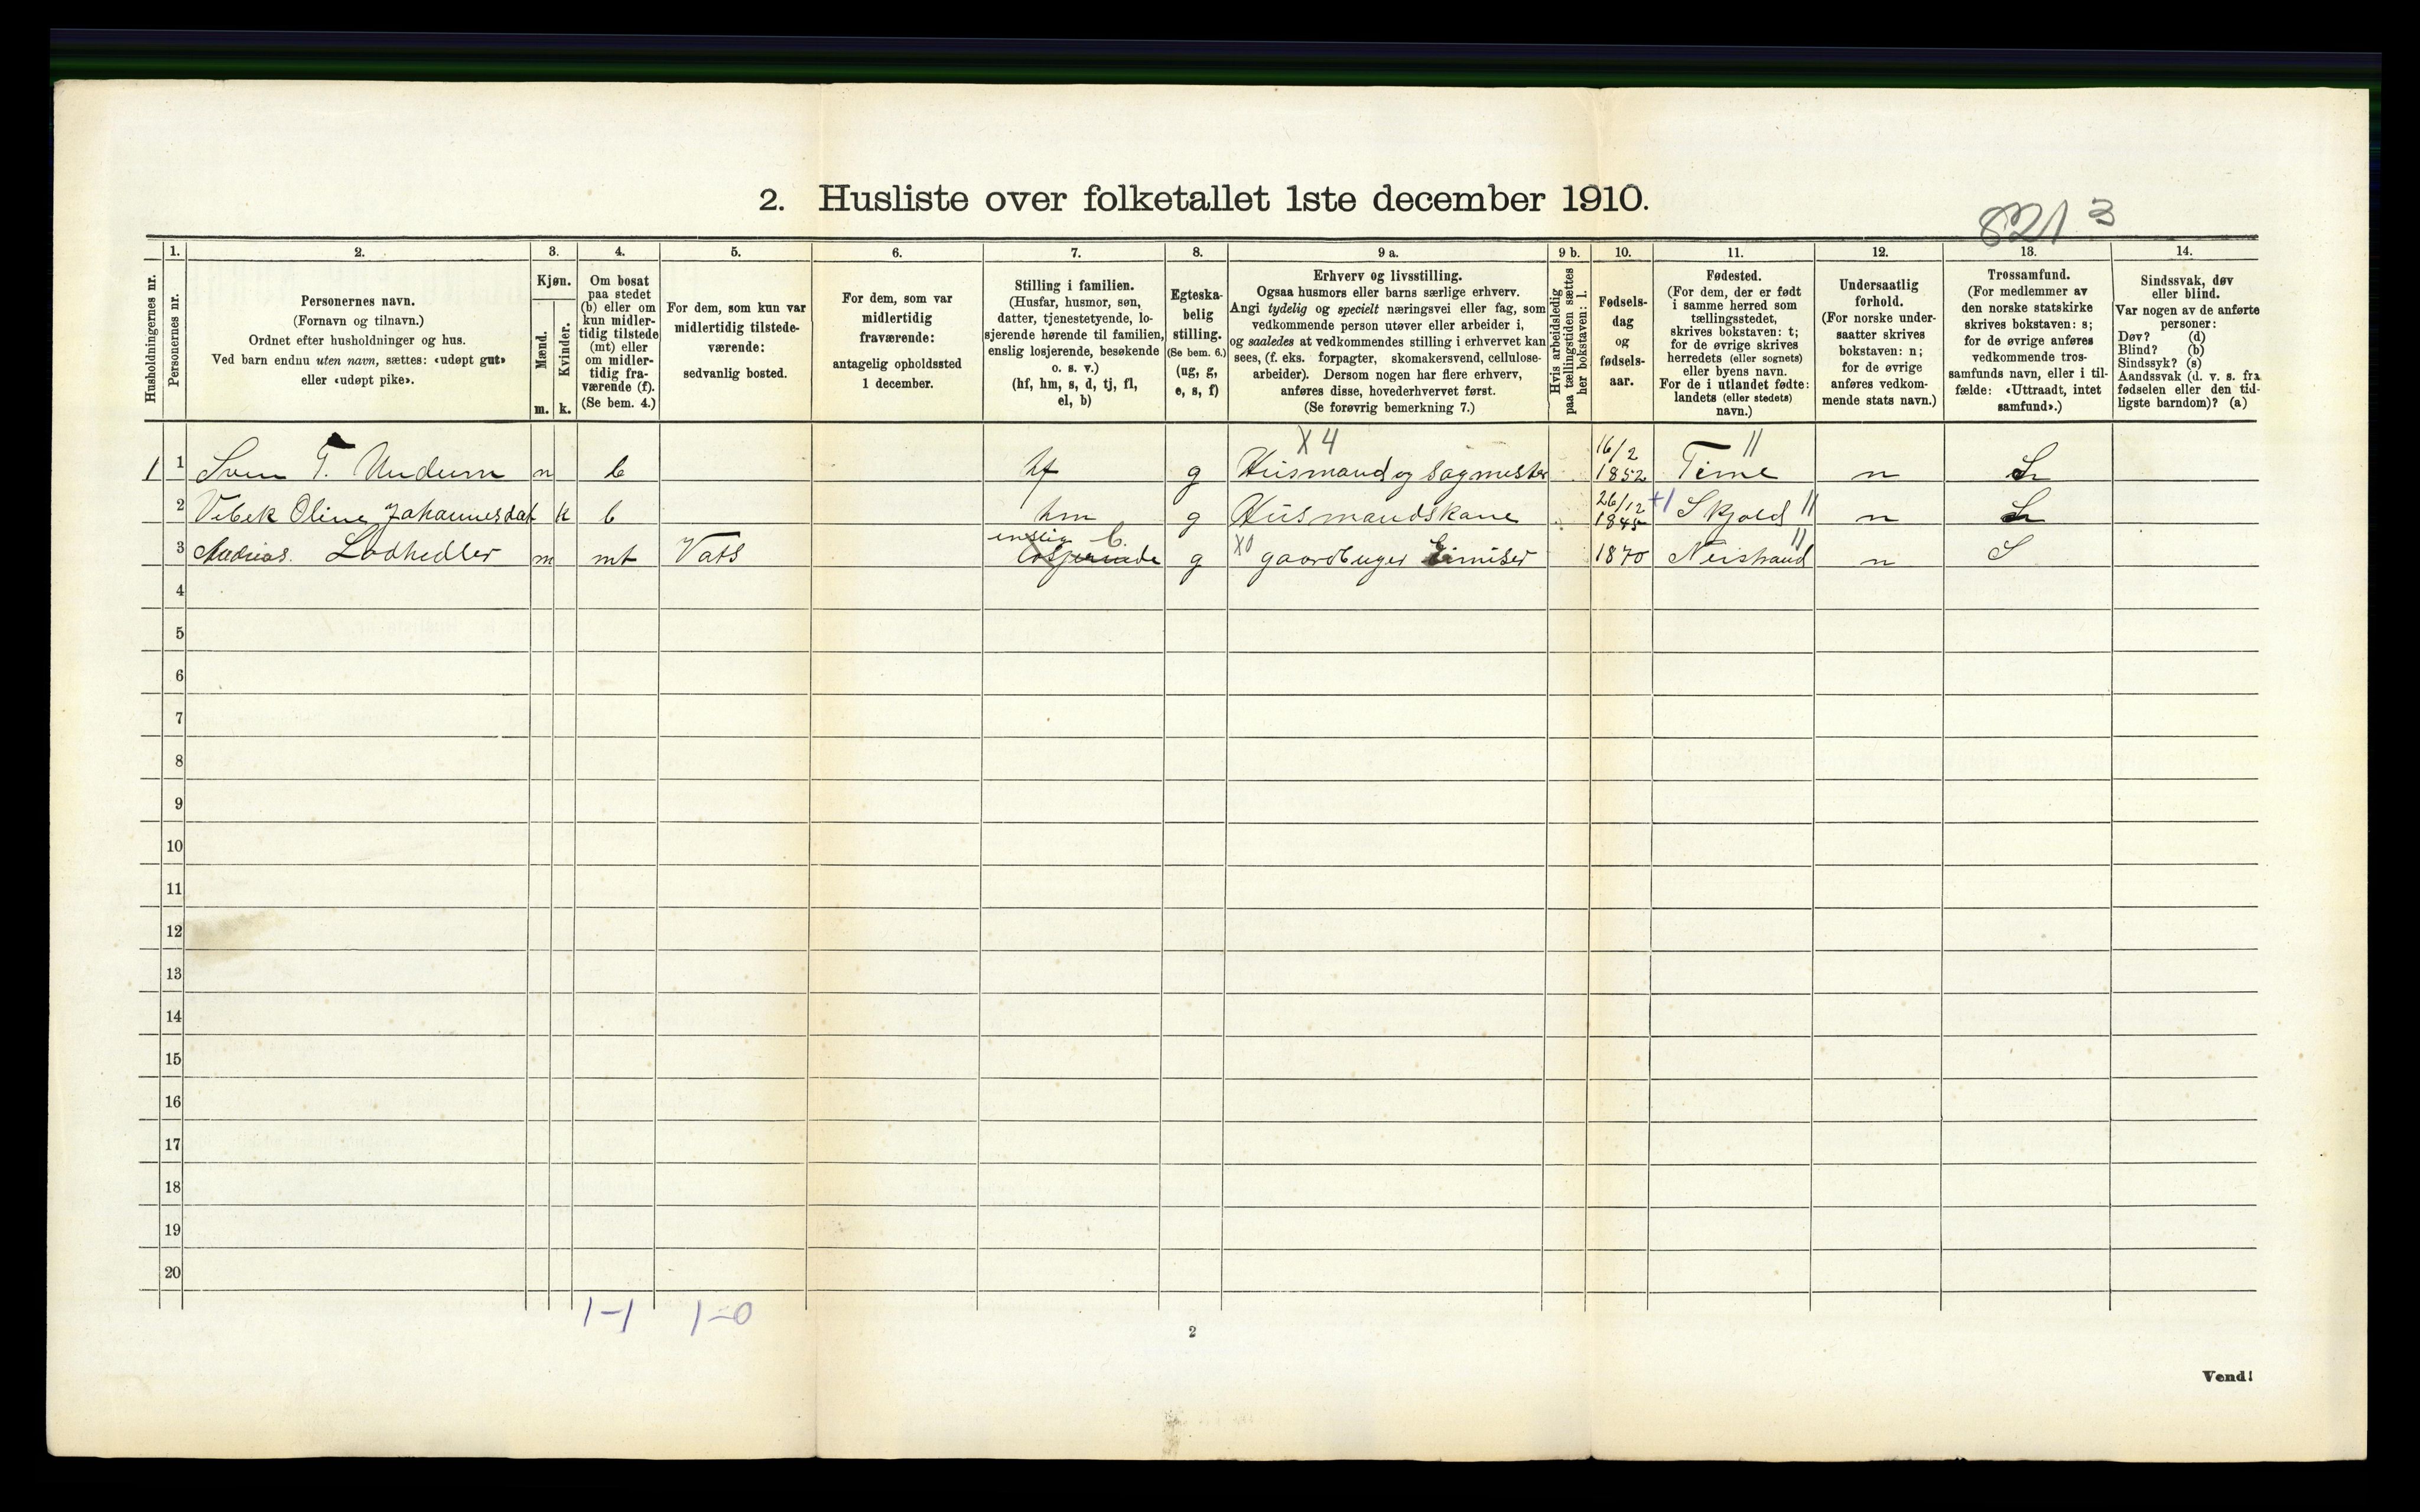 2. Husliste over folketallet 1ste december 1910.
821 3
Husholdningernes nr.
1.
Personernes nr.
2.
Personernes navn.
(Fornavn og tilnavn.)
Ordnet efter husholdninger og hus.
Ved barn endnu uten navn, sættes: «udøpt gut»
eller «udøpt pike».
3.
Kjøn.
Mænd.
m.
Kvinder.
k.
4.
Om bosat
paa stedet
(b) eller om
kun midler-
tidig tilstede
(mt) eller
om midler-
tidig fra-
værende (f).
(Se bem. 4.)
5.
For dem, som kun var
midlertidig tilstede-
værende:
sedvanlig bosted.
6.
For dem, som var
midlertidig
fraværende:
antagelig opholdssted
1 december.
7.
Stilling i familien.
(Husfar, husmor, søn,
datter, tjenestetyende, lo-
sjerende hørende til familien,
enslig losjerende, besøkende
o. s. v.)
(hf, hm, s, d, tj, fl,
el, b)
8.
Egteska-
belig
stilling.
(Se bem. 6.)
(ug, g,
e, s, f)
9 a.
Erhverv og livsstilling.
Ogsaa husmors eller barns særlige erhverv.
Angi tydelig og specielt næringsvei eller fag, som
vedkommende person utøver eller arbeider i,
og saaledes at vedkommendes stilling i erhvervet kan
sees, (f. eks. forpagter, skomakersvend, cellulose-
arbeider). Dersom nogen har flere erhverv,
anføres disse, hovederhvervet først.
(Se forøvrig bemerkning 7.)
9 b.
Hvis arbeidsledig
paa tællingstiden sættes
her bokstaven: l.
10.
Fødsels-
dag
og
fødsels-
aar.
11.
Fødested.
(For dem, der er født
i samme herred som
tællingsstedet,
skrives bokstaven: t;
for de øvrige skrives
herredets (eller sognets)
eller byens navn.
For de i utlandet fødte:
landets (eller stedets)
navn.)
12.
Undersaatlig
forhold.
(For norske under-
saatter skrives
bokstaven: n;
for de øvrige
anføres vedkom-
mende stats navn.)
13.
Trossamfund.
(For medlemmer av
den norske statskirke
skrives bokstaven: s;
for de øvrige anføres
vedkommende tros-
samfunds navn, eller i til-
fælde: «Uttraadt, intet
samfund».)
14.
Sindssvak, døv
eller blind.
Var nogen av de anførte
personer:
Døv? (d)
Blind? (b)
Sindssyk? (s)
Aandssvak (d. v. s. fra
fødselen eller den tid-
ligste barndom)? (a)
X 4
1 1 Sven T. Undem m b hf g Husmand og Sagmester 16/2 1852 Time n S
2 Vibek Oline Johannesdat k b hm g Husmandskone 26/12 1845 +1 Skjold n S
enslig b.
3 Lodhedler m mt Vats losjerende g X0 gaardbruger 1870 Neistrand n S
4
5
6
7
8
9
10
11
12
13
14
15
16
17
18
19
20
1-1 1-0
2
Vend!